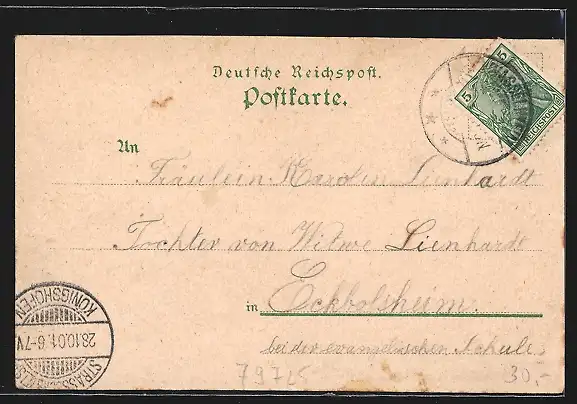 Deutsche Reichspost.
Postkarte.
5
5
REICHSPOST
An
Fräulein Karolin Lienhardt
Tochter von Witwe Lienhardt
in Eckbolsheim.
bei der evangelischen Schule
KÖNIGSHOFEN
28.10.01.6-7V
STRASSBURG
79725
30,-